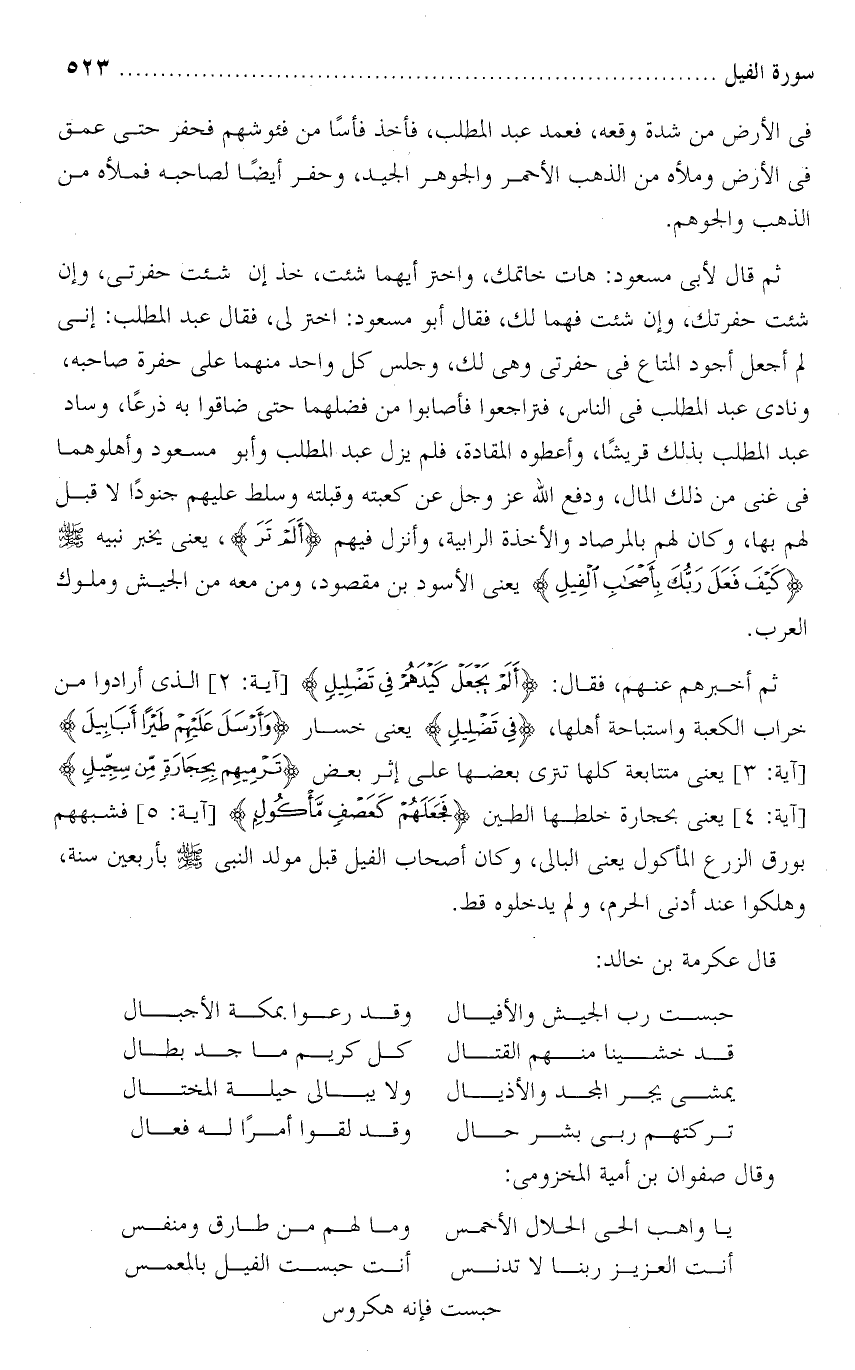 سورة الفيل ........................................................................ ٥٢٣
فى الأرض من شدة وقعه، فعمد عبد المطلب، فأخذ فأسًا من فئوشهم فحفر حتـى عمـق
فى الأرض وملأه من الذهب الأحمـر والجوهـر الجيـد، وحفـر أيضًـا لصاحبـه فمـلأه مـن
الذهب والجوهم.
ثم قال لأبى مسعود: هات خاتمك، واختر أيهما شئت، خذ إن شـئت حفرتـى، وإن
شئت حفرتك، وإن شئت فهما لك، فقال أبو مسعود: اختر لى، فقال عبد المطلب: إنـى
لم أجعل أجود المتاع فى حفرتى وهى لك، وجلس كل واحد منهما على حفرة صاحبه،
ونادى عبد المطلب فى الناس، فتراجعوا فأصابوا من فضلهما حتى ضاقوا به ذرعًا، وساد
عبد المطلب بذلك قريشًا، وأعطوه المقادة، فلم يزل عبد المطلب وأبو مسـعود وأهلوهمـا
فى غنى من ذلك المال، ودفع الله عز وجل عن كعبته وقبلته وسلط عليهم جنودًا لا قبـل
لهم بها، وكان لهم بالمرصاد والأخذة الرابية، وأنزل فيهم ﴿أَلَمْ تَرَ﴾، يعنى يخبر نبيه ﷺ
﴿كَيْفَ فَعَلَ رَبُّكَ بِأَصْحَٰبِ ٱلْفِيلِ﴾ يعنى الأسود بن مقصود، ومن معه من الجيـش وملـوك
العرب.
ثم أخـبرهم عنـهم، فقـال: ﴿أَلَمْ يَجْعَلْ كَيْدَهُمْ فِى تَضْلِيلٍ﴾ [آيـة: ٢] الـذى أرادوا مـن
خراب الكعبة واستباحة أهلها، ﴿فِى تَضْلِيلٍ﴾ يعنى خسـار ﴿وَأَرْسَلَ عَلَيْهِمْ طَيْرًا أَبَابِيلَ﴾
[آية: ٣] يعنى متتابعة كلها تترى بعضـها علـى إثـر بعـض ﴿تَرْمِيهِم بِحِجَارَةٍ مِّن سِجِّيلٍ﴾
[آية: ٤] يعنى بحجارة خلطـها الطـين ﴿فَجَعَلَهُمْ كَعَصْفٍ مَّأْكُولٍ﴾ [آيـة: ٥] فشـبههم
بورق الزرع المأكول يعنى البالى، وكان أصحاب الفيل قبل مولد النبى ﷺ بأربعين سنة،
وهلكوا عند أدنى الحرم، ولم يدخلوه قط.
قال عكرمة بن خالد:
حبسـت رب الجيـش والأفيـال وقـد رعـوا بمكـة الأجبـال
قـد خشـينا منـهم القتـال كـل كريـم مـا جـد بطـال
يمشـى يجـر المجـد والأذيـال ولا يبـالى حيلـة المختـال
تـركتهـم ربـى بشـر حـال وقـد لقـوا أمـرًا لـه فعـال
وقال صفوان بن أمية المخزومى:
يـا واهـب الحـى الحـلال الأحمـس ومـا لهـم مـن طـارق ومنفـس
أنـت العزيـز ربنـا لا تدنـس أنـت حبسـت الفيـل بالمعمـس
حبست فإنه هكروس